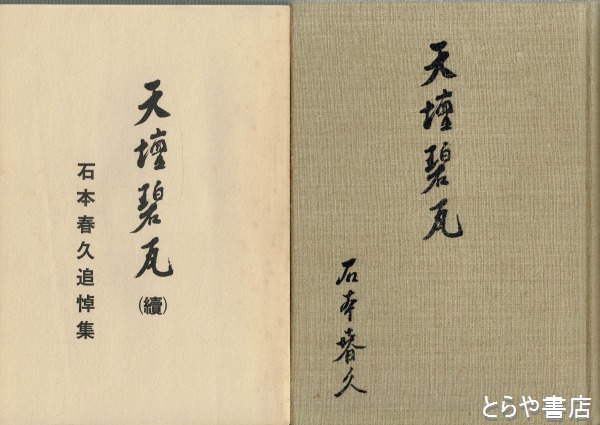 天壇碧瓦
(續)
石本春久追悼集
天壇碧瓦
石本春久
とらや書店